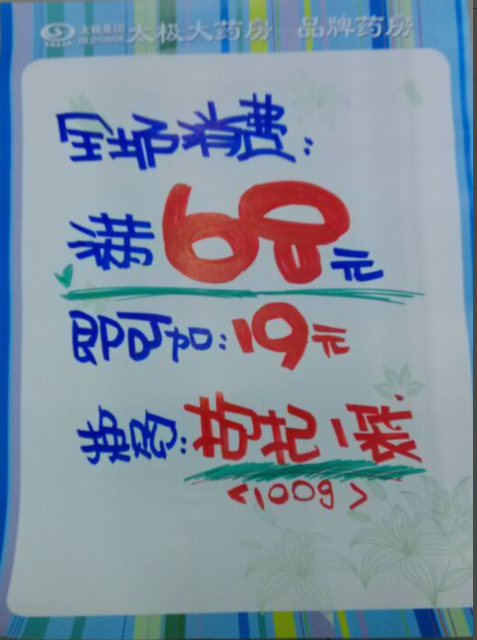 太极集团
太极大药房 品牌药房
全场消费:
满68元
即可加:19元
换购:枸杞一袋
<100g>